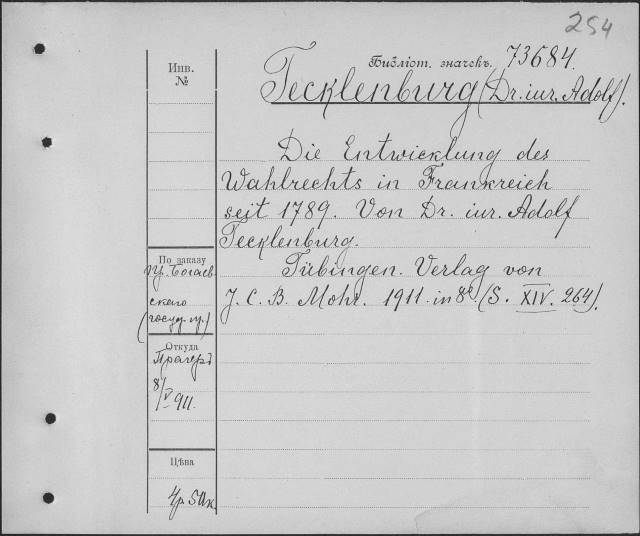 254
Библіот. значекъ. 73684.
Инв.
№
Tecklenburg (Dr. iur. Adolf).
Die Entwicklung des
Wahlrechts in Frankreich
seit 1789. Von Dr. iur. Adolf
Tecklenburg.
Tübingen. Verlag von
J. C. B. Mohr. 1911. in 8° (S. XIV. 264).
По заказу
пр. Богаев
скаго
(госуд. пр.)
Откуда
Прагеръ
8/V 911.
Цѣна
4р 50к.